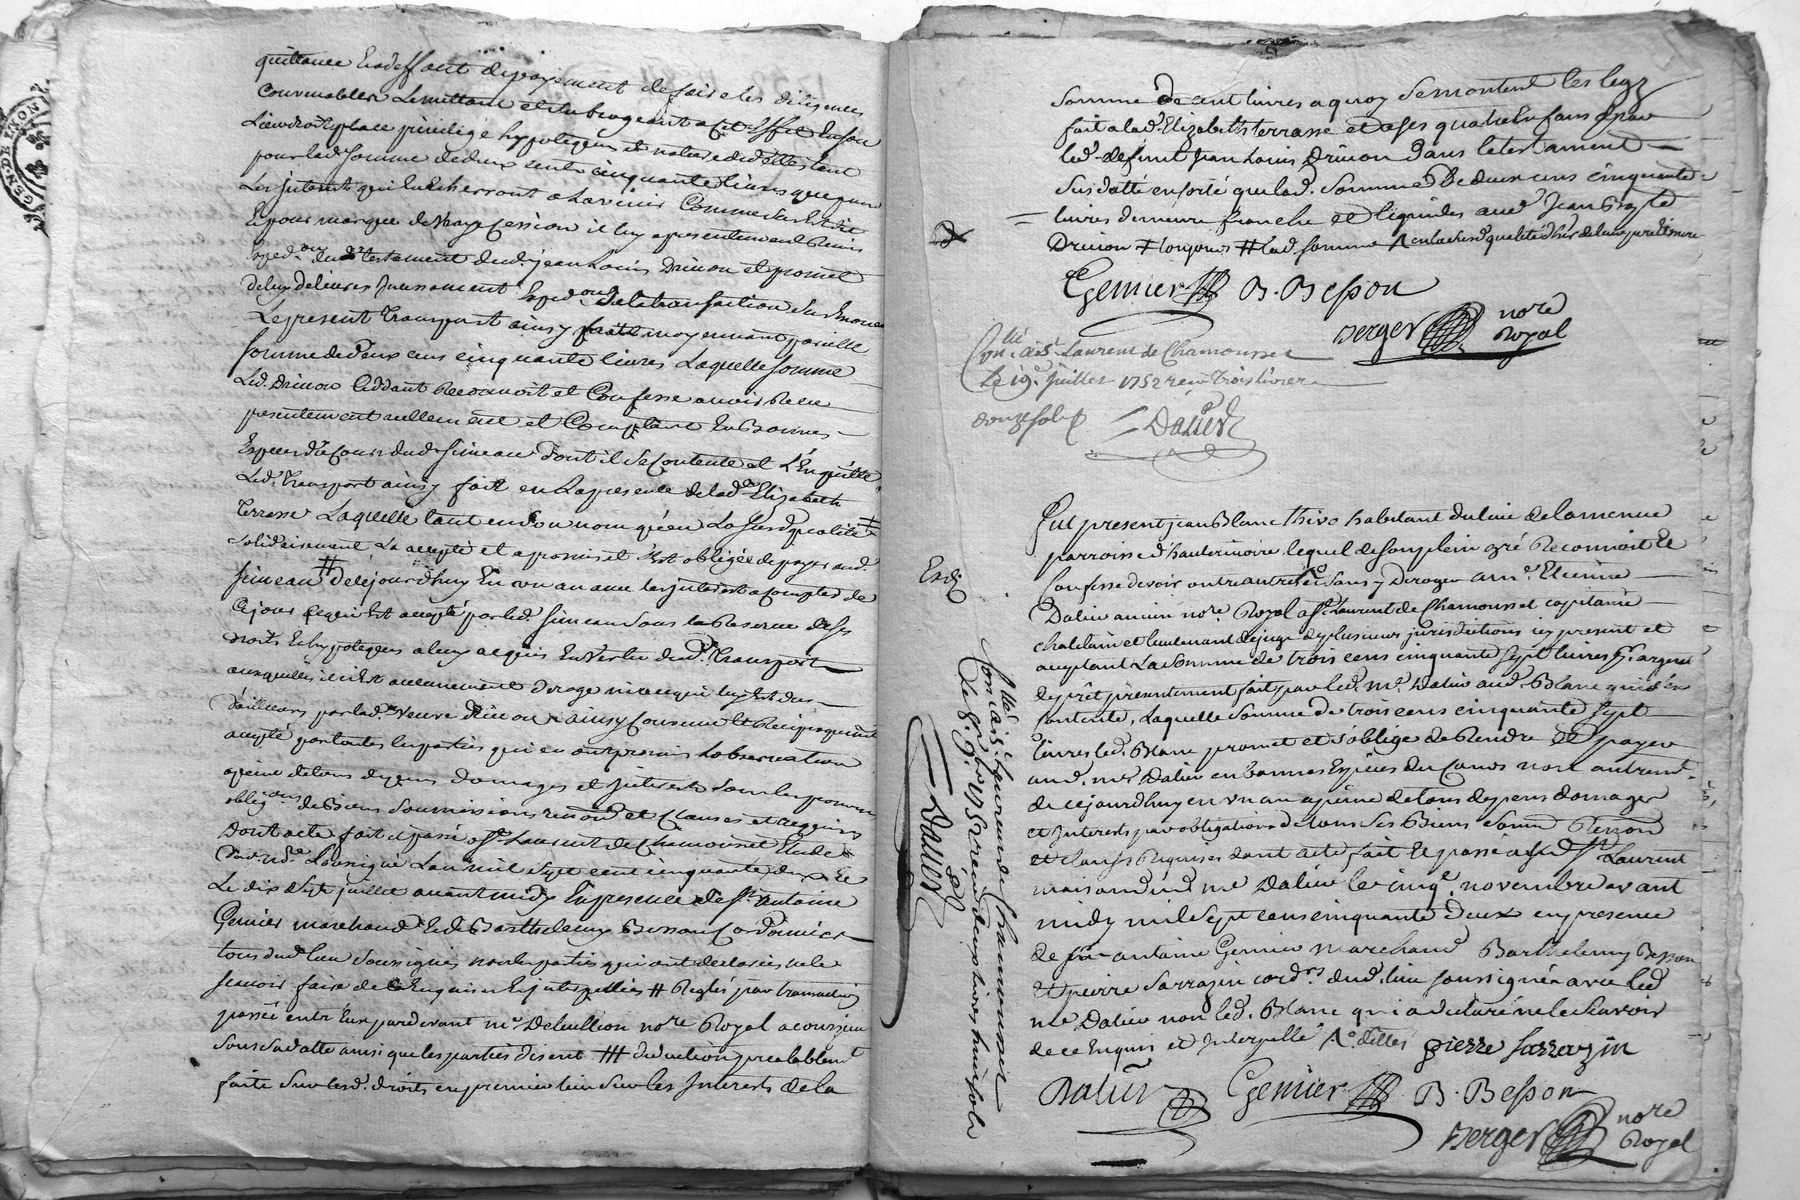 GEN. DE LYON
quittance & adeffault de payement de faire les diligences
convenables Le mettant et subrogeant a cet Effet En son
Lieu droit place privilege hypoteques et notoirede dotte tant
pour lad. somme de deux cents cinquante livres que pour
Les interets qui En Echerront a L'avenir Comme dit Est
Et pour marque de vraye Cession il luy a presentement Remis
Exped.on du testament dud. jean Louis Drivon et promet
de luy delivrer Incessament Exped.on de la transaction
Le present Transport ainsy fait moyennant pareille
somme de Deux cens cinquante livres Laquelle somme
Led. Drivon Ceddant Reconnoit et Confesse avoir Receu
presentement reellement et Comptant En Bonnes
Especes du Cours dud. Simean Dont il se Contente et L'En quitte
Led. Transport ainsy fait en La presence de lad. Elizabeth
Terrasse Laquelle tant en son nom qu'en La susd. qualité ‡
solidairement La accepté et a promis et s'est obligée de payer aud.
Simean # de cejourdhuy En un an avec les interets a compter de
Ce jour Ce qui Est accepté par led. Simean sous la Reserve de ses
droits Et hypoteques a luy acquis En Vertu dud. Transport
auxquelles il n'Est aucunement deroge ni a ce qui luy Est du
d'ailleurs par lad. Veuve Drivon ainsy Convenu Et Reciproquement
accepté par toutes les parties qui en ont promis L'observation
a peine de tous depens Domages et interets sous les
oblig.ons de Biens soumissions renon.on et Clauses et Requises
Dont acte fait et passé a St. Laurent de Chamousset Etude
du no.re Soussigné L'an mil sept cent cinquante deux Et
Le dix sept juillet avant midy En presence de Sr. Antoine
Genier marchand Et de Barthelemy Besson Cordonnier
tous dud. lieu soussignés non les parties qui ont declaré ne le
scavoir faire de ce Enquises Et interpellées # Reglés par transaction
passée entr'Eux pardevant me. Deleullion no.re Royal a courzieu
sous sa datte ainsi que les parties disent ‡‡ deduction prealablement
faite sur lesd. droits en premier lieu sur les Interets de la
somme de cent livres a quoy se montent les legz
fait a lad. Elizabeth terrasse et a ses quatre Enfans par
led. defunt Jean Louis Drivon dans le testament
susdatté en sorte que lad. somme de deux cens cinquante
livres demeure franche et liquides aud. Jean
Drivon ‡ toujours # lad. somme
Genier B. Besson
Berger no.re Royal
Con.llé a St. Laurent de Chamousset
Le 19. Juillet 1752 reçu Trois livres
douze sols
Dalier
Exp.
Fut present jean Blanc thivo habitant du lieu de la menue
parroisse d'hauterivoire lequel de son plein gré Reconnoit Et
Confesse devoir outre autre sans y Deroger a me. Etienne
Dalier ancien no.re Royal a St. Laurent de Chamousset capitaine
chatelain et lieutenant de juge de plusieurs jurisdictions icy present et
acceptant La somme de trois cens cinquante sept livres pr. argent
de prêt presentement fait par led. me. Dalier aud. Blanc qui s'en
contente, Laquelle somme de trois cens cinquante sept
livres led. Blanc promet et s'oblige de Rendre Et payer
aud. me. Dalier en bonnes Espèces du Cours non autrem.t
de cejourdhuy en un an a peine de tous depens domages
et Interests par obligation de tous ses Biens soum. Renon.
et clauses Requises dont acte fait Et passé aud. St. Laurent
maison dud. me Dalier le cinq.e novembre avant
midy mil sept cens cinquante deux en presence
de Sr. antoine Genier marchand Barthelemy Besson
Et pierre sarrazin cord.rs dud. lieu soussignés avec led.
me Dalier non led. Blanc qui a déclaré ne le scavoir
de ce Enquis et Interpellé
pierre sarrazin
Dalier Genier B. Besson
Berger no.re Royal
Con.llé a St. Laurent de Chamousset
Le 8. 9.bre 1752 reçu deux livres huit sols
Dalier